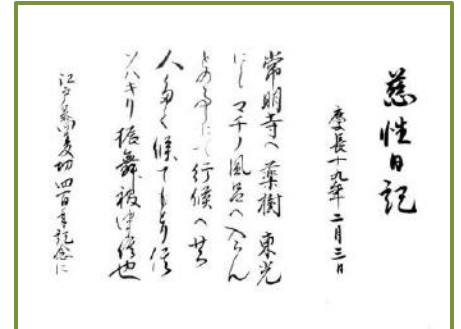 慈性日記
慶長十九年 二月三日
常明寺へ薬樹 東光
にもマチノ風呂へ入らん
との事にて行候へ共
人多く候てもどり候
ソハキリ振舞被申候也
江戸蕎麦切四百年記念に